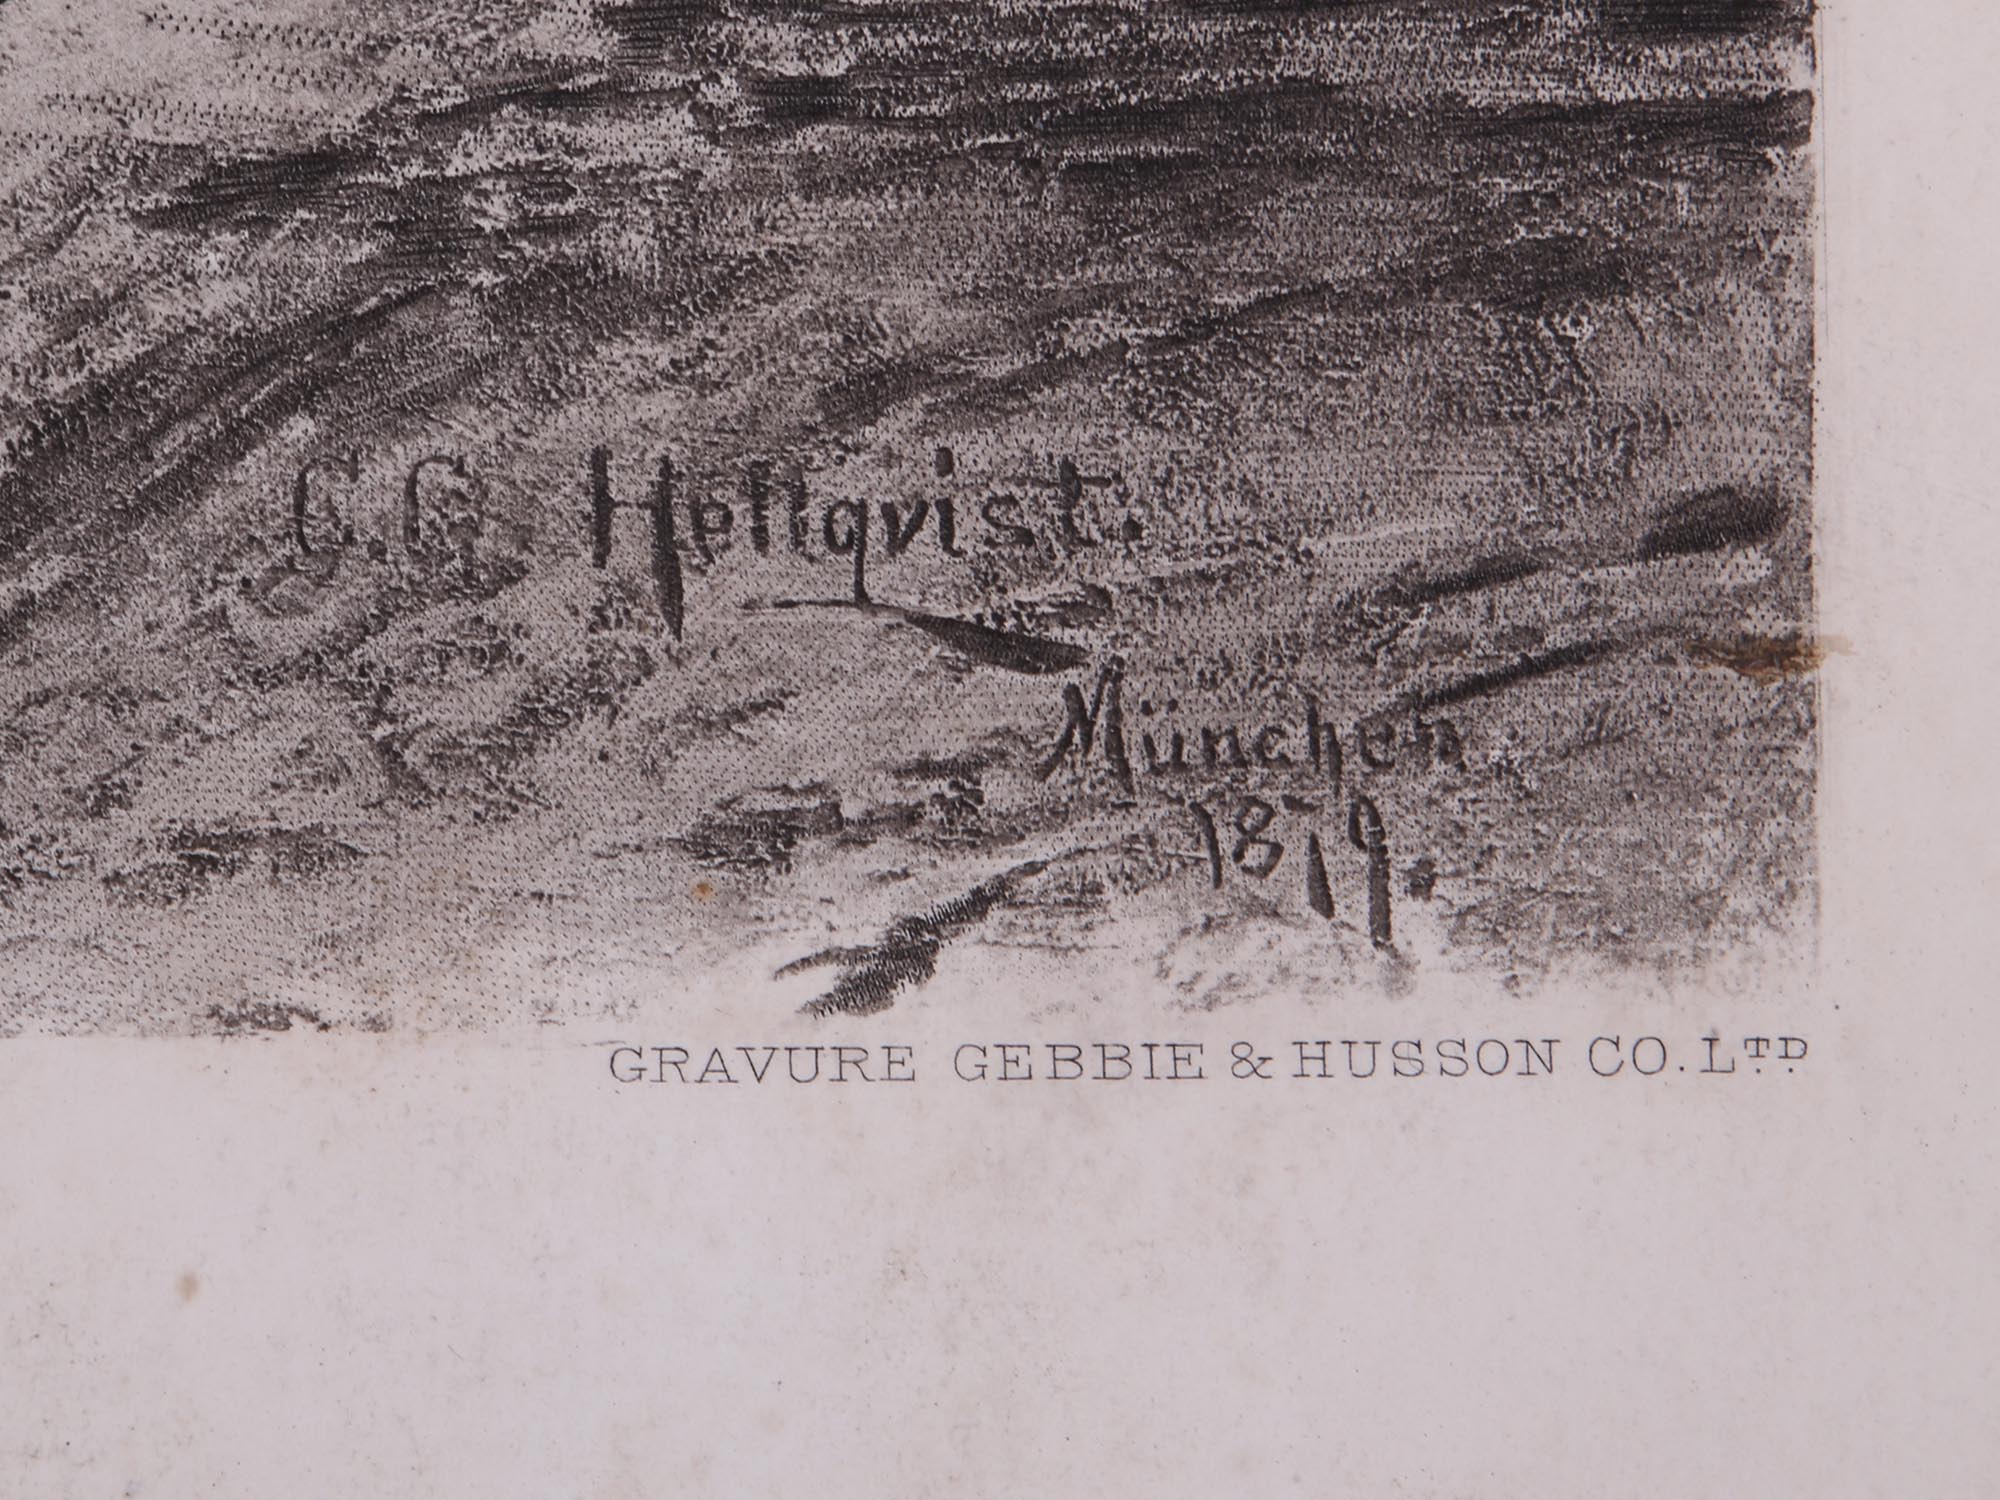 C. G. Hellqvist.
München
1879.
GRAVURE GEBBIE & HUSSON CO. LTD.